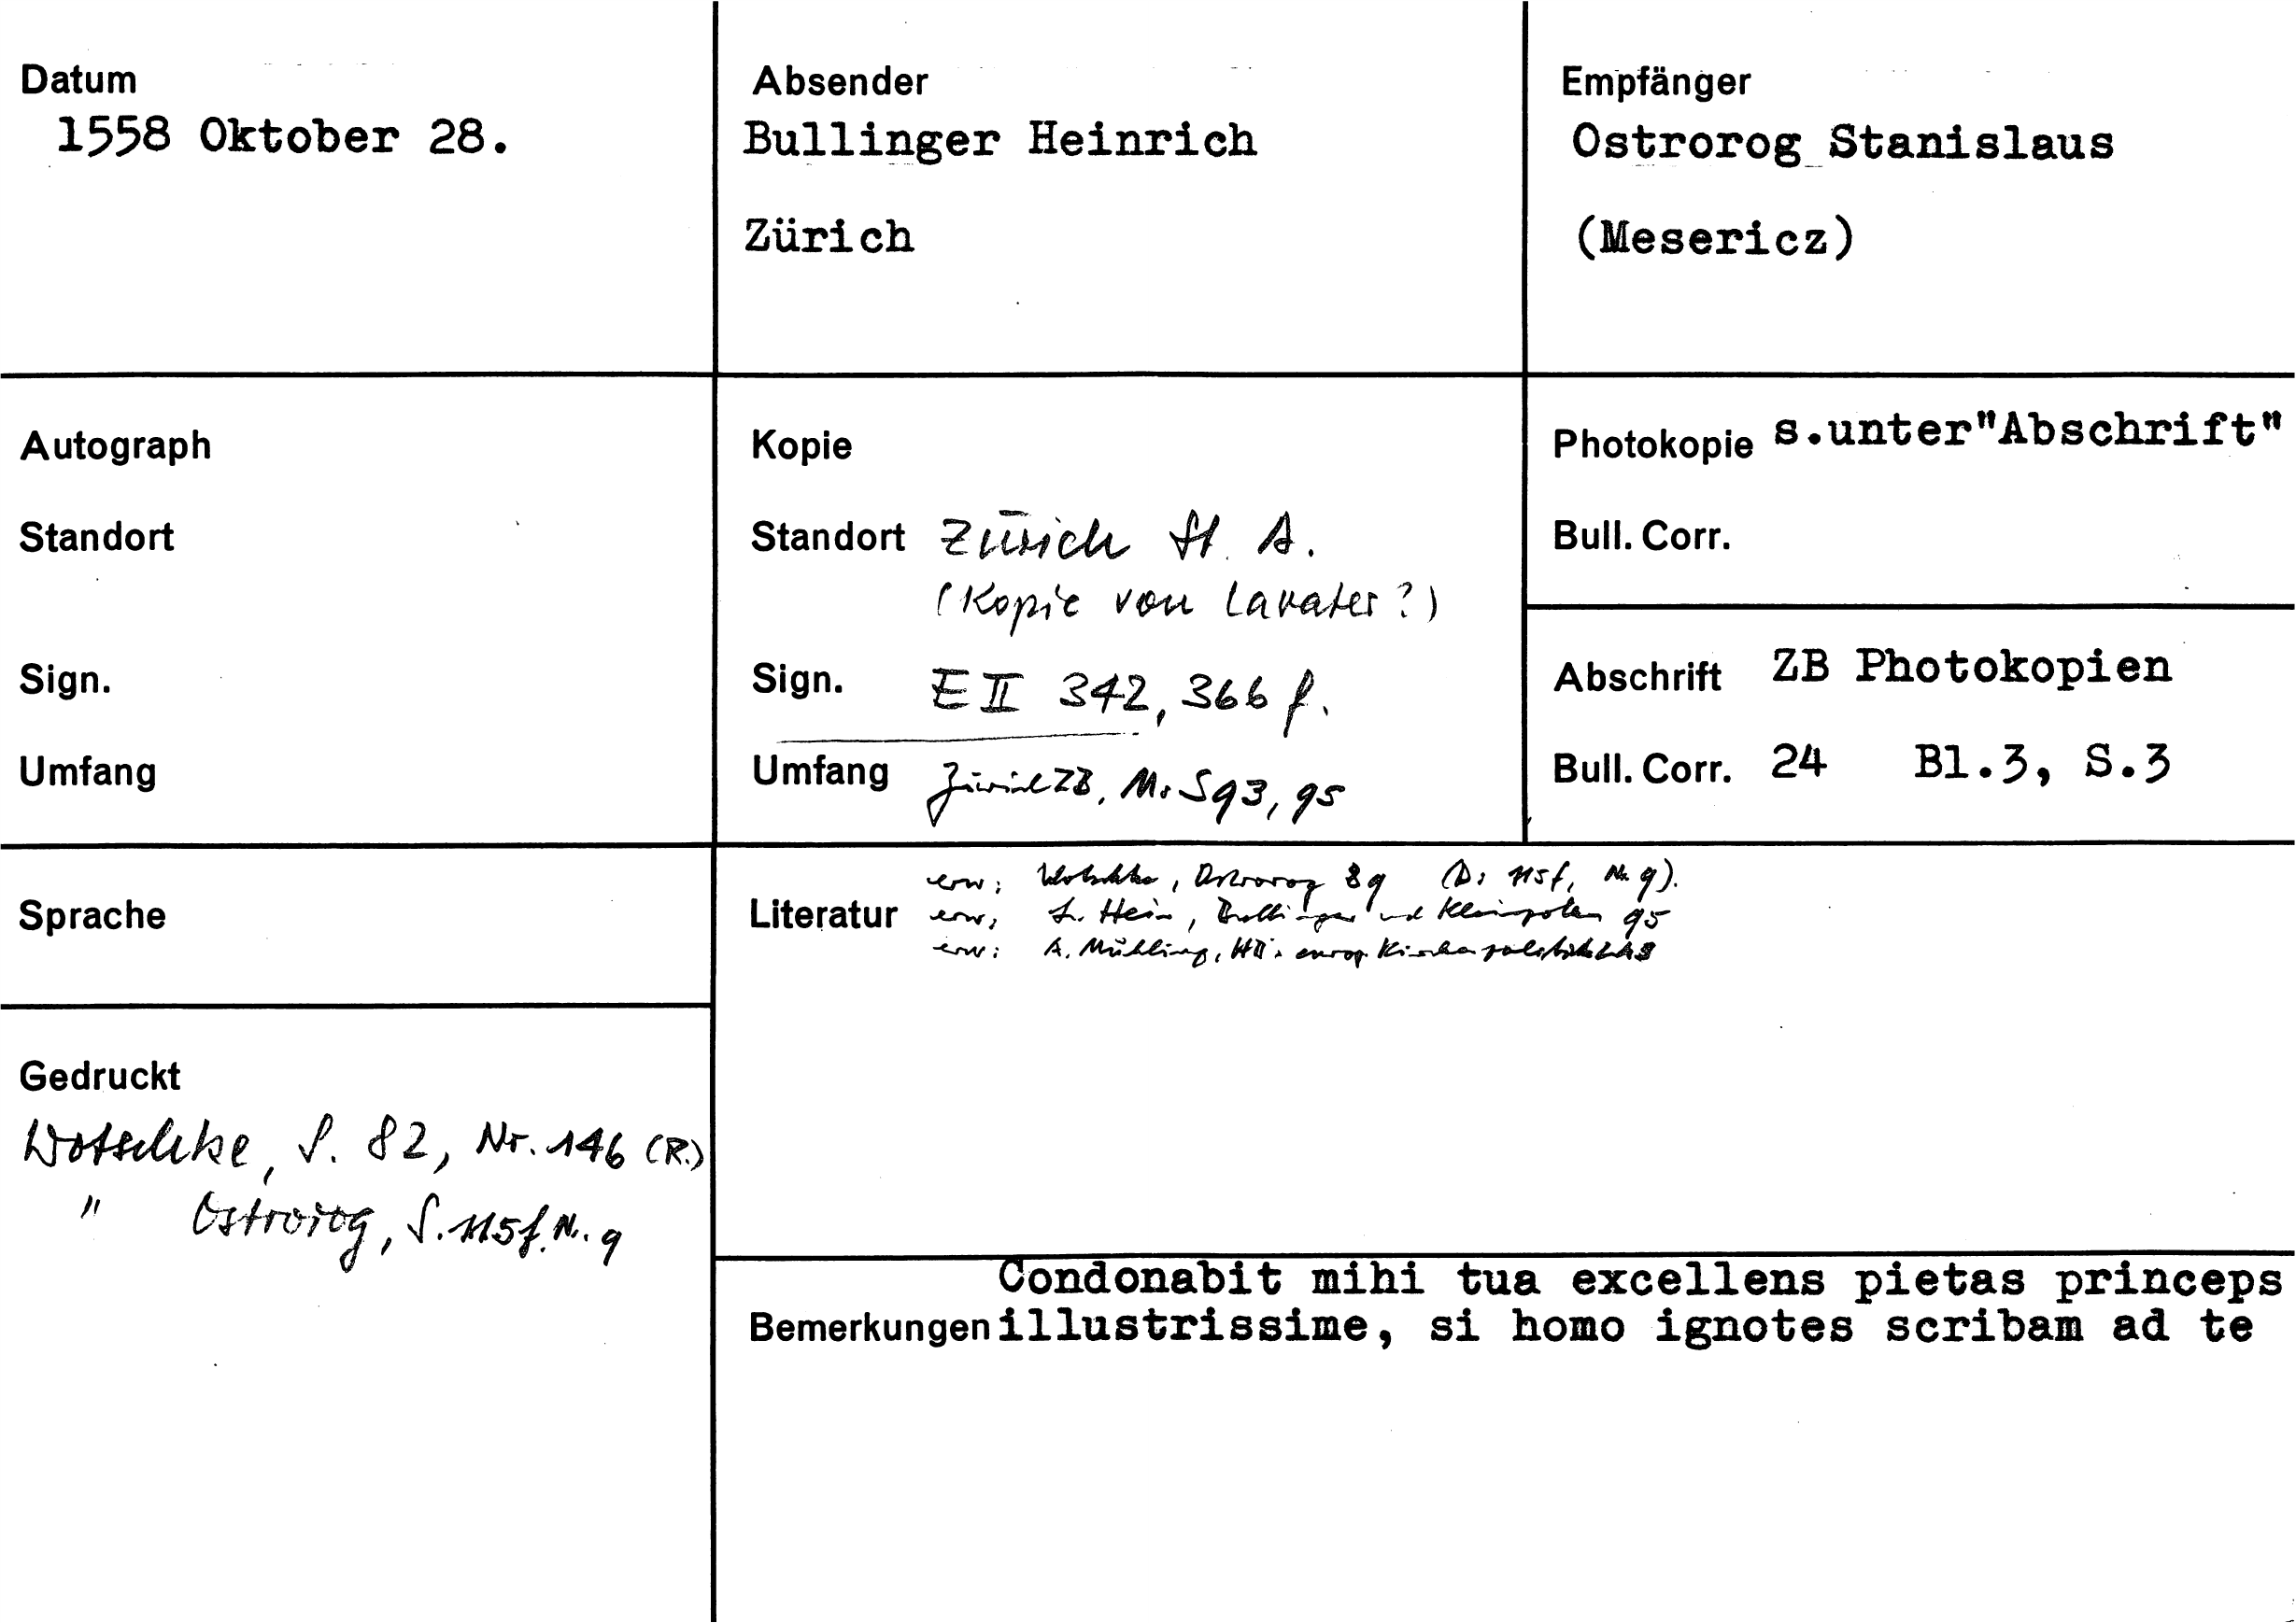 Datum
1558 Oktober 28.
Absender
Bullinger Heinrich
Zürich
Empfänger
Ostrorog Stanislaus
(Mesericz)
Autograph
Standort
Sign.
Umfang
Kopie
Standort Zürich St. A.
(Kopie von Lavater?)
Sign. E II 342, 366 f.
Umfang Zürich ZB, Ms S 93, 95
Photokopie s.unter"Abschrift"
Bull. Corr.
Abschrift ZB Photokopien
Bull. Corr. 24 Bl.3, S.3
Sprache
Literatur
erw: Wotschke, Ostrorog 89 (D: 115f, Nr. 9).
erw: L. Hein, Bullinger und Kleinpolen 95
erw: A. Mühling, europ. Kirchenpolitik
Gedruckt
Wotschke, S. 82, Nr. 146 (R.)
" Ostrorog, S. 115f. Nr. 9
Bemerkungen
Condonabit mihi tua excellens pietas princeps
illustrissime, si homo ignotes scribam ad te